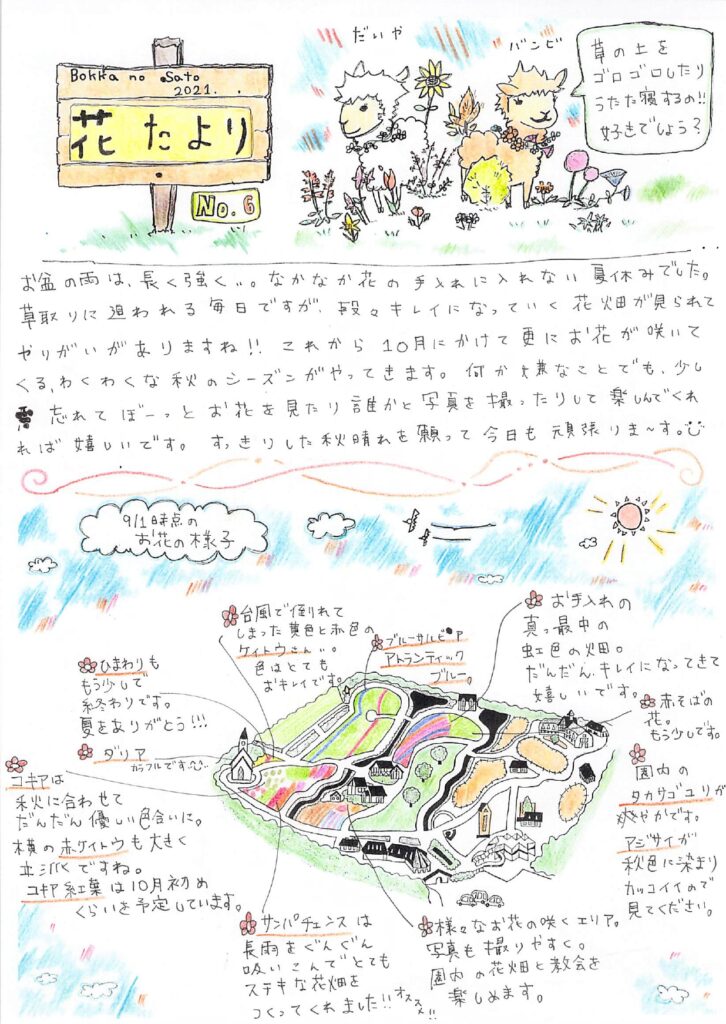 Bokka no Sato
2021.
花たより
No.6
だいや
バンビ
草の上を
ゴロゴロしたり
うたた寝するの!!
好きでしょう?
お盆の雨は、長く強く…。なかなか花の手入れに入れない夏休みでした。
草取りに追われる毎日ですが、段々キレイになっていく花畑が見られて
やりがいがありますね!! これから10月にかけて更にお花が咲いて
くる、わくわくな秋のシーズンがやってきます。何か嫌なことでも、少し
忘れてぼーっとお花を見たり誰かと写真を撮ったりして楽しんでくれ
れば嬉しいです。すっきりした秋晴れを願って今日も頑張りま〜す。
9/1時点の
お花の様子
台風で倒れて
しまった黄色と赤色の
ケイトウさん…。
色はとても
おキレイです。
ブルーサルビア
アトランティック
ブルー。
お手入れの
真っ最中の
虹色の畑。
だんだんキレイになってきて
嬉しいです。
赤そばの
花。
もう少しです。
ひまわりも
もう少しで
終わりです。
夏をありがとう!!!
ダリア
カラフルです
コキアは
秋に合わせて
だんだん優しい色合いに。
横の赤ケイトウも大きく
立派ですね。
コキア紅葉は10月初め
くらいを予定しています。
園内の
タカサゴユリが
爽やかです。
アジサイが
秋色に染まり
カッコイイので
見てください。
サンパチェンスは
長雨をぐんぐん
吸いこんでとても
ステキな花畑を
つくってくれました!! オススメ!!
様々なお花の咲くエリア。
写真も撮りやすく。
園内の花畑と教会を
楽しめます。